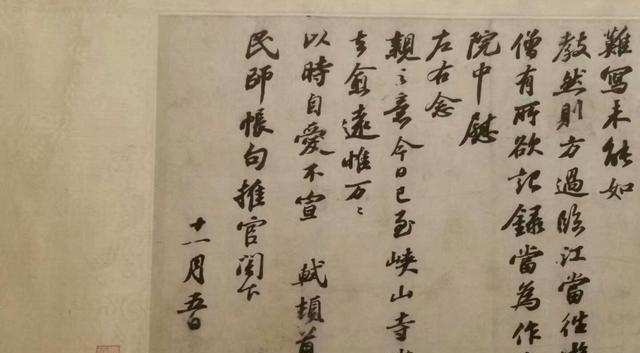 難寫未能如
教然則方過臨江當往
僧有所欲記錄當為作
院中慰
左右念
親之意今日已至峽山寺
去愈遠惟万〻
以時自愛不宣 軾頓首
民師帳句推官閣下
十一月五日